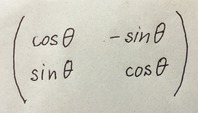 cosθ -sinθ
sinθ cosθ